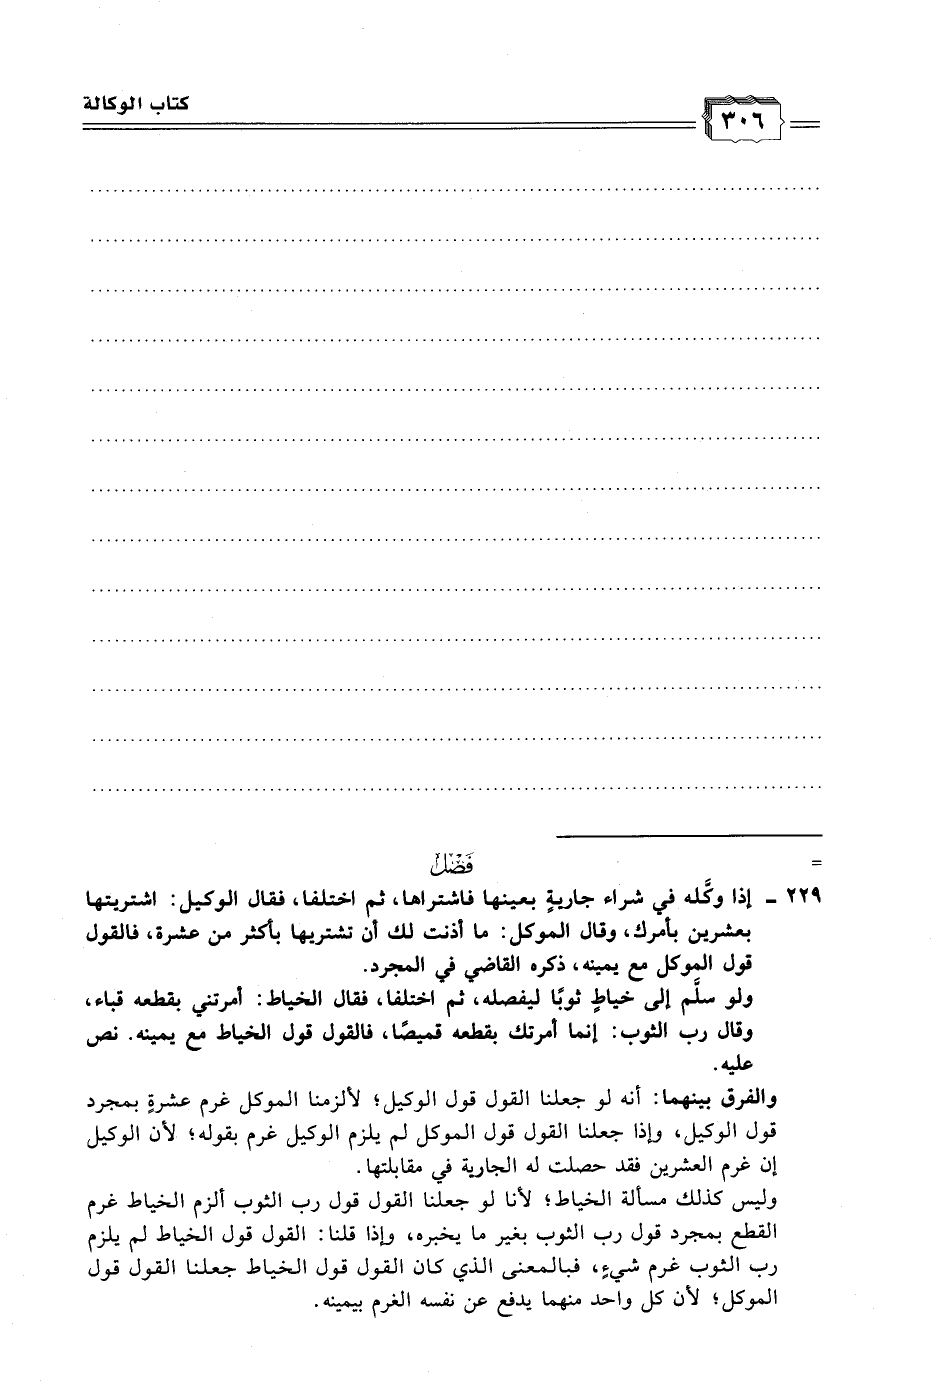 كتاب الوكالة
٣٠٦
=
فَصْل
٢٢٩ ـ إذا وكَّله في شراء جاريةٍ بعينها فاشتراها، ثم اختلفا، فقال الوكيل: اشتريتها
بعشرين بأمرك، وقال الموكل: ما أذنت لك أن تشتريها بأكثر من عشرة، فالقول
قول الموكل مع يمينه، ذكره القاضي في المجرد.
ولو سلَّم إلى خياطٍ ثوبًا ليفصله، ثم اختلفا، فقال الخياط: أمرتني بقطعه قباء،
وقال رب الثوب: إنما أمرتك بقطعه قميصًا، فالقول قول الخياط مع يمينه. نص
عليه.
والفرق بينهما: أنه لو جعلنا القول قول الوكيل؛ لألزمنا الموكل غرم عشرةٍ بمجرد
قول الوكيل، وإذا جعلنا القول قول الموكل لم يلزم الوكيل غرم بقوله؛ لأن الوكيل
إن غرم العشرين فقد حصلت له الجارية في مقابلتها.
وليس كذلك مسألة الخياط؛ لأنا لو جعلنا القول قول رب الثوب ألزم الخياط غرم
القطع بمجرد قول رب الثوب بغير ما يخبره، وإذا قلنا: القول قول الخياط لم يلزم
رب الثوب غرم شيءٍ، فبالمعنى الذي كان القول قول الخياط جعلنا القول قول
الموكل؛ لأن كل واحد منهما يدفع عن نفسه الغرم بيمينه.